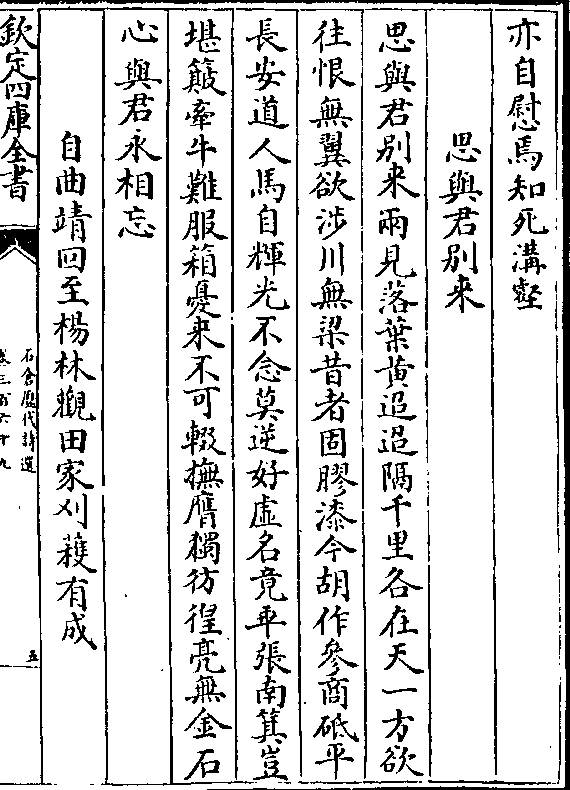 亦自慰焉知死溝壑
思與君別来
思與君別来兩見落葉黄迢迢隔千里各在天一方欲
往恨無翼欲涉川無梁昔者固膠漆今胡作參商砥平
長安道人馬自輝光不念莫逆好虚名竟平張南箕豈
堪簸牽牛難服箱憂来不可輟撫膺獨彷徨亮無金石
心與君永相忘
自曲靖回至楊林觀田家刈穫有成
欽定四庫全書
石倉歷代詩選
卷三百六十九
五